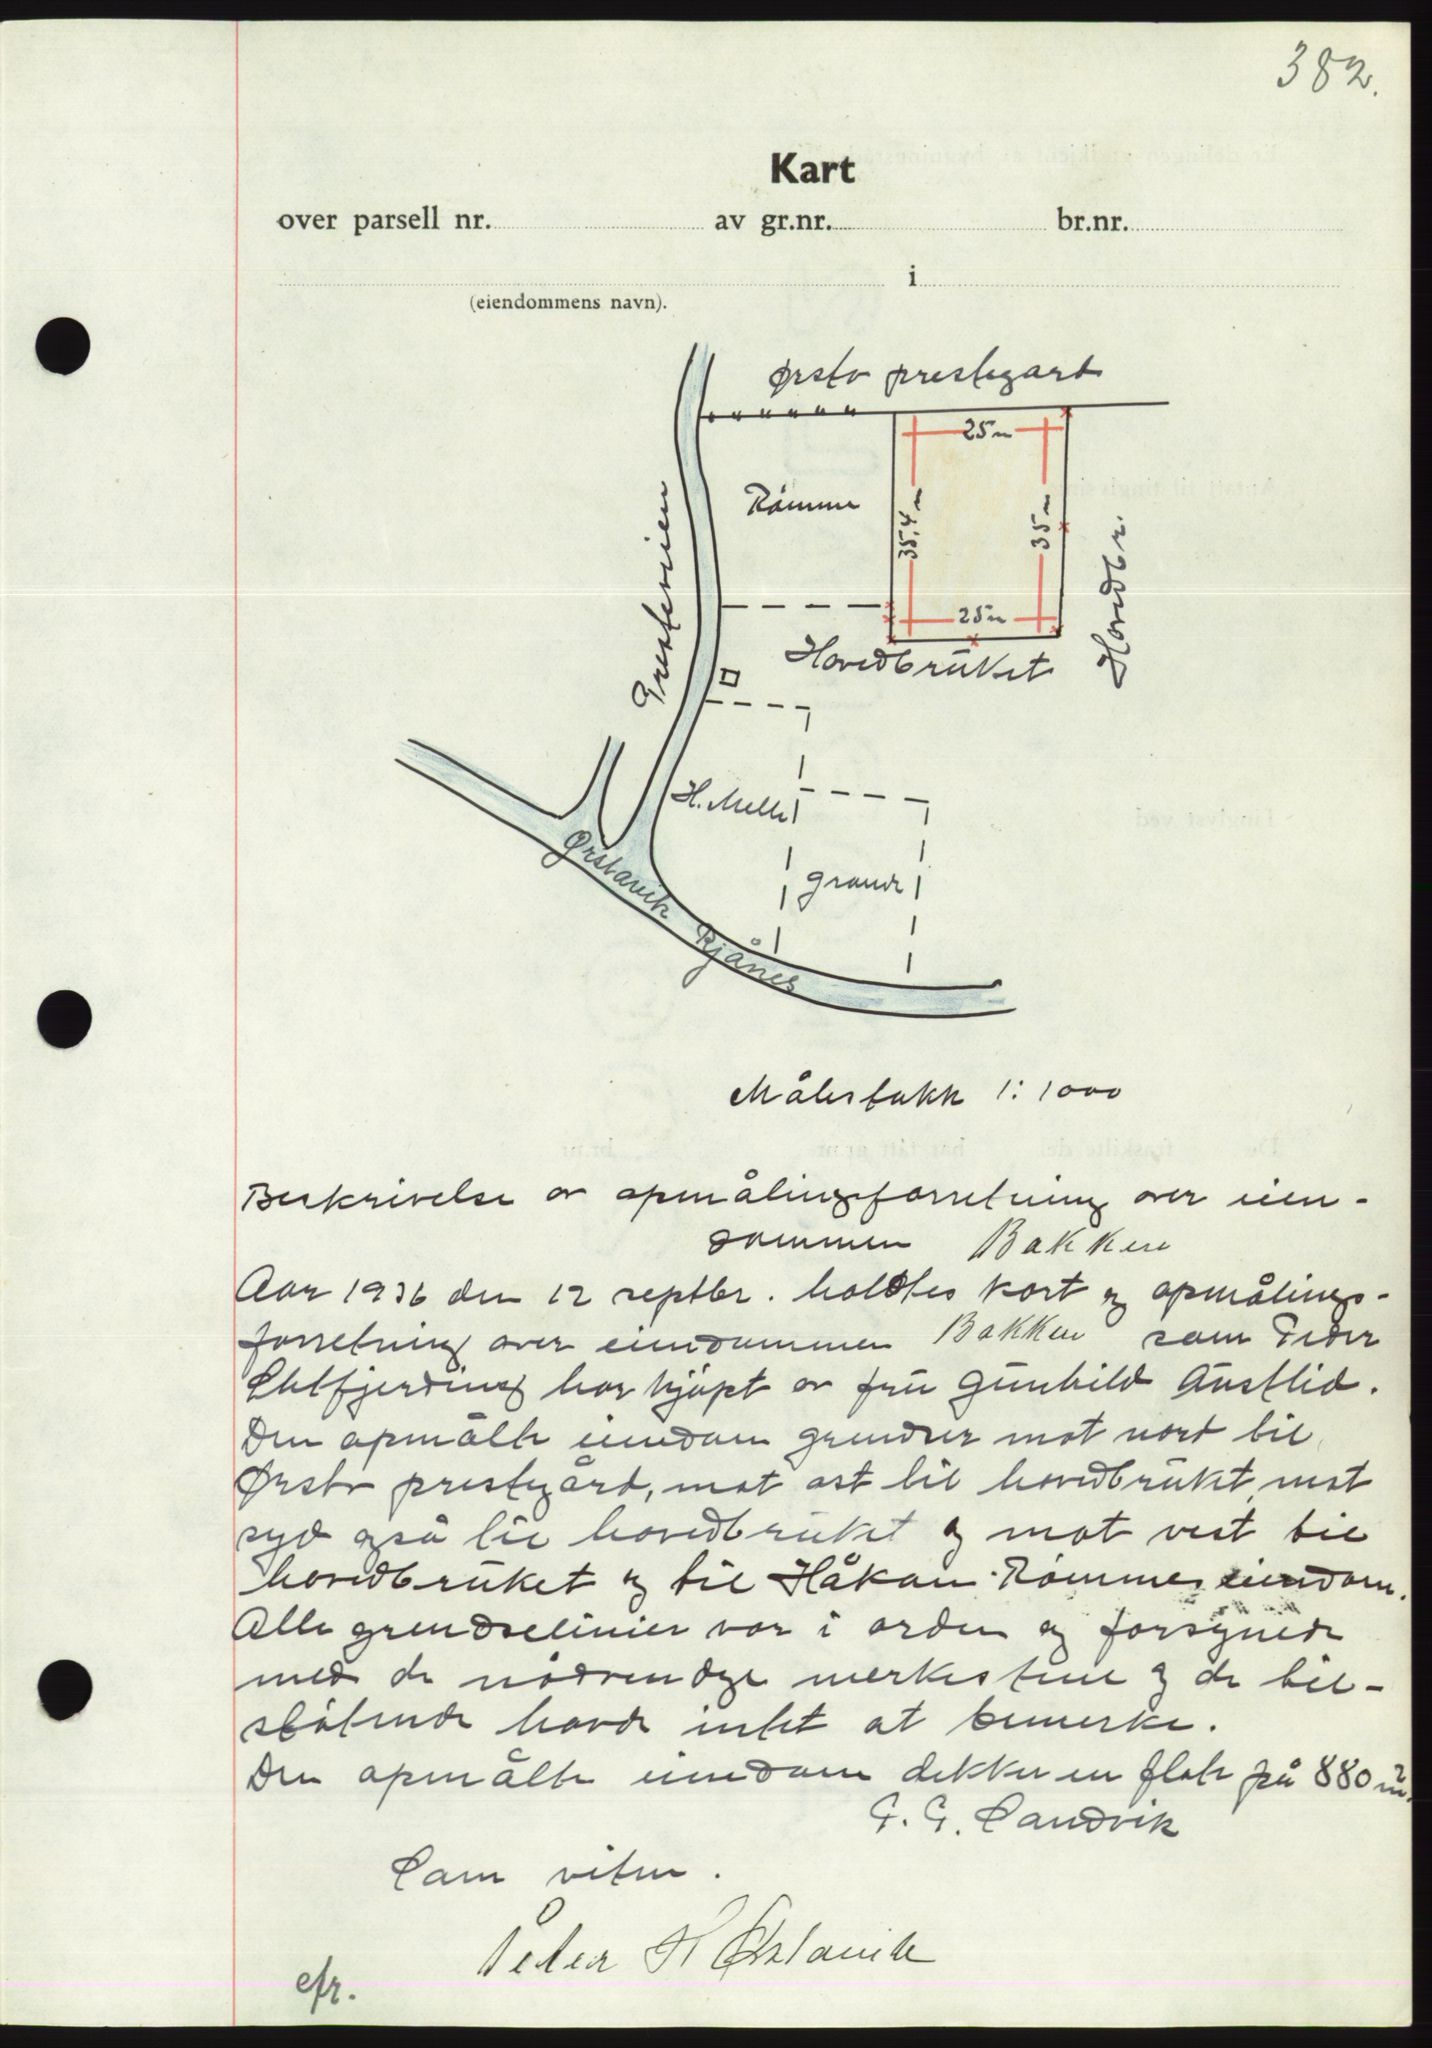 382.
Kart
over parsell nr. av gr.nr. br.nr.
i
(eiendommens navn).
Ørsta prestegard
25 m
Rømme
35,4 m
35 m
Prestevien
Hovedbr.
25 m
Hovedbrüket
H. Melle
Ørstavik
grande
Rjånes
Målestokk 1:1000
Beskrivelse av opmålingsforretning over eien-
dommen Bakken
Aar 1936 den 12 septbr. holdtes kart og opmålings-
forretning over eiendommen Bakken som Peder
har kjöpt av frü Günhild Aüstlid.
Den opmålte eiendom grendser mot nord til
Ørsta prestegård, mot øst til hovedbrüket, mot
syd også til hovedbrüket og mot vest til
hovedbrüket og til Håkon Rømmes eiendom.
Alle grendselinier var i orden og forsynede
med de nödvendige merkestene og de til-
stötende havde intet at bemerke.
Den opmålte eiendom dekker en flate på 880 m².
G. G. Sandvik
Som viten.
Peter K Ørstavik
cfr.